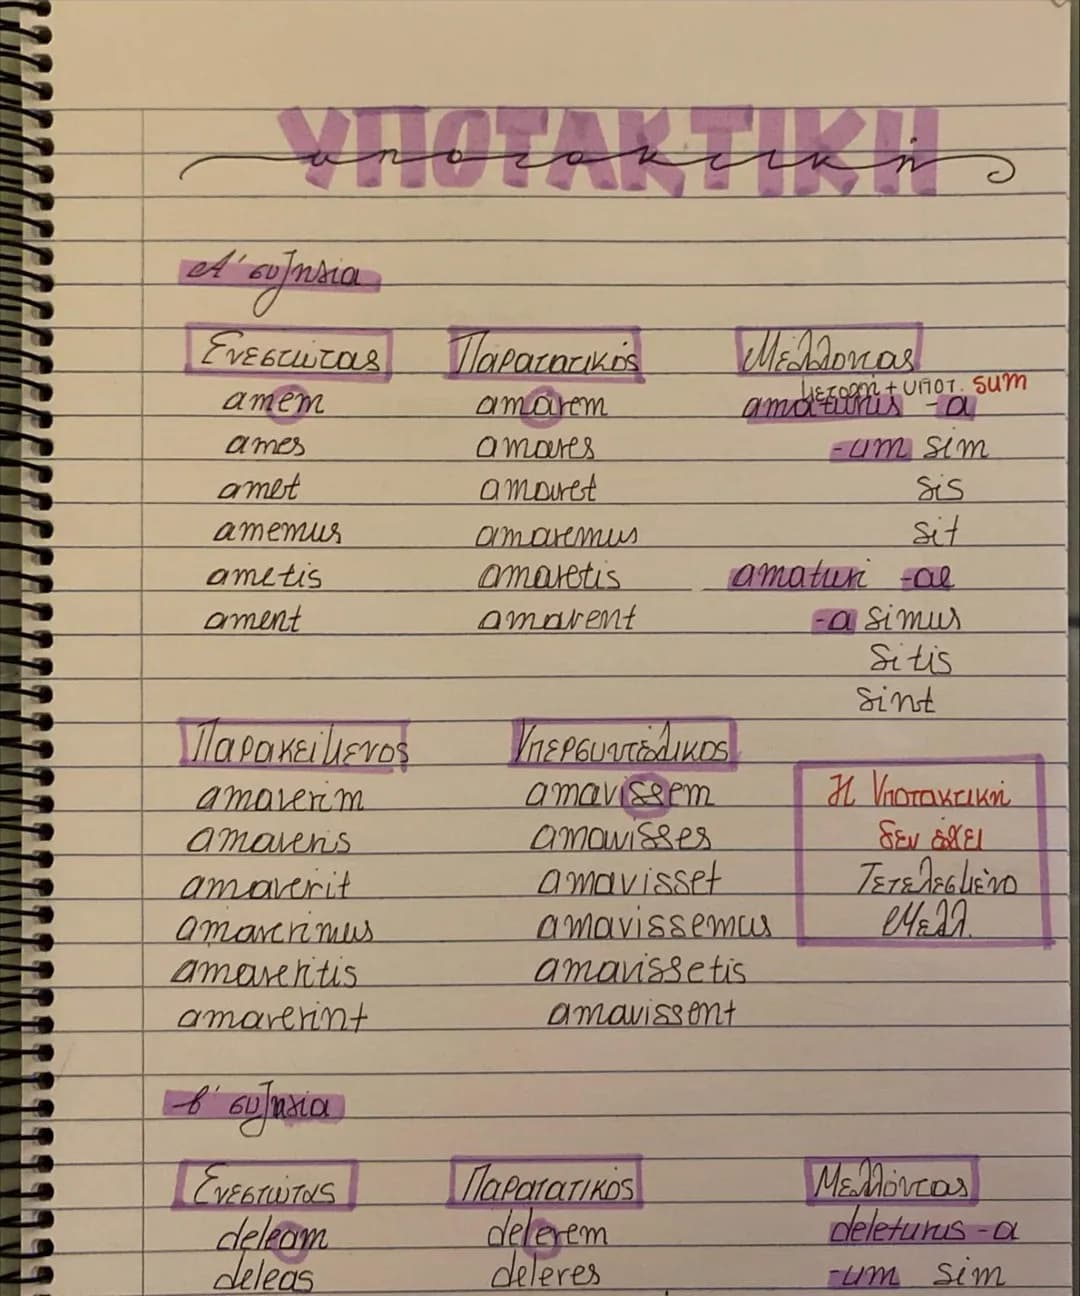 ΥΠΟΤΑΚΤΙΚΗ
υποτακτική
Α' συζηγία
Ενεστώτας Παρατατικός Μέλλοντας
μετοχή + υποτ. sum
amem amarem amaturus -a
ames amares -um sim
amet amaret sis
amemus amaremus sit
ametis amaretis amaturi -ae
ament amarent -a simus
sitis
sint
Παρακείμενος Υπερσυντέλικος
amaverim amavissem Η Υποτακτική
amaveris amavisses δεν έχει
amaverit amavisset Τετελεσμένο
amaverimus amavissemus Μελλ.
amaveritis amavissetis
amaverint amavissent
β' συζηγία
Ενεστώτας Παρατατικός Μέλλοντας
deleam delerem deleturus -a
deleas deleres -um sim